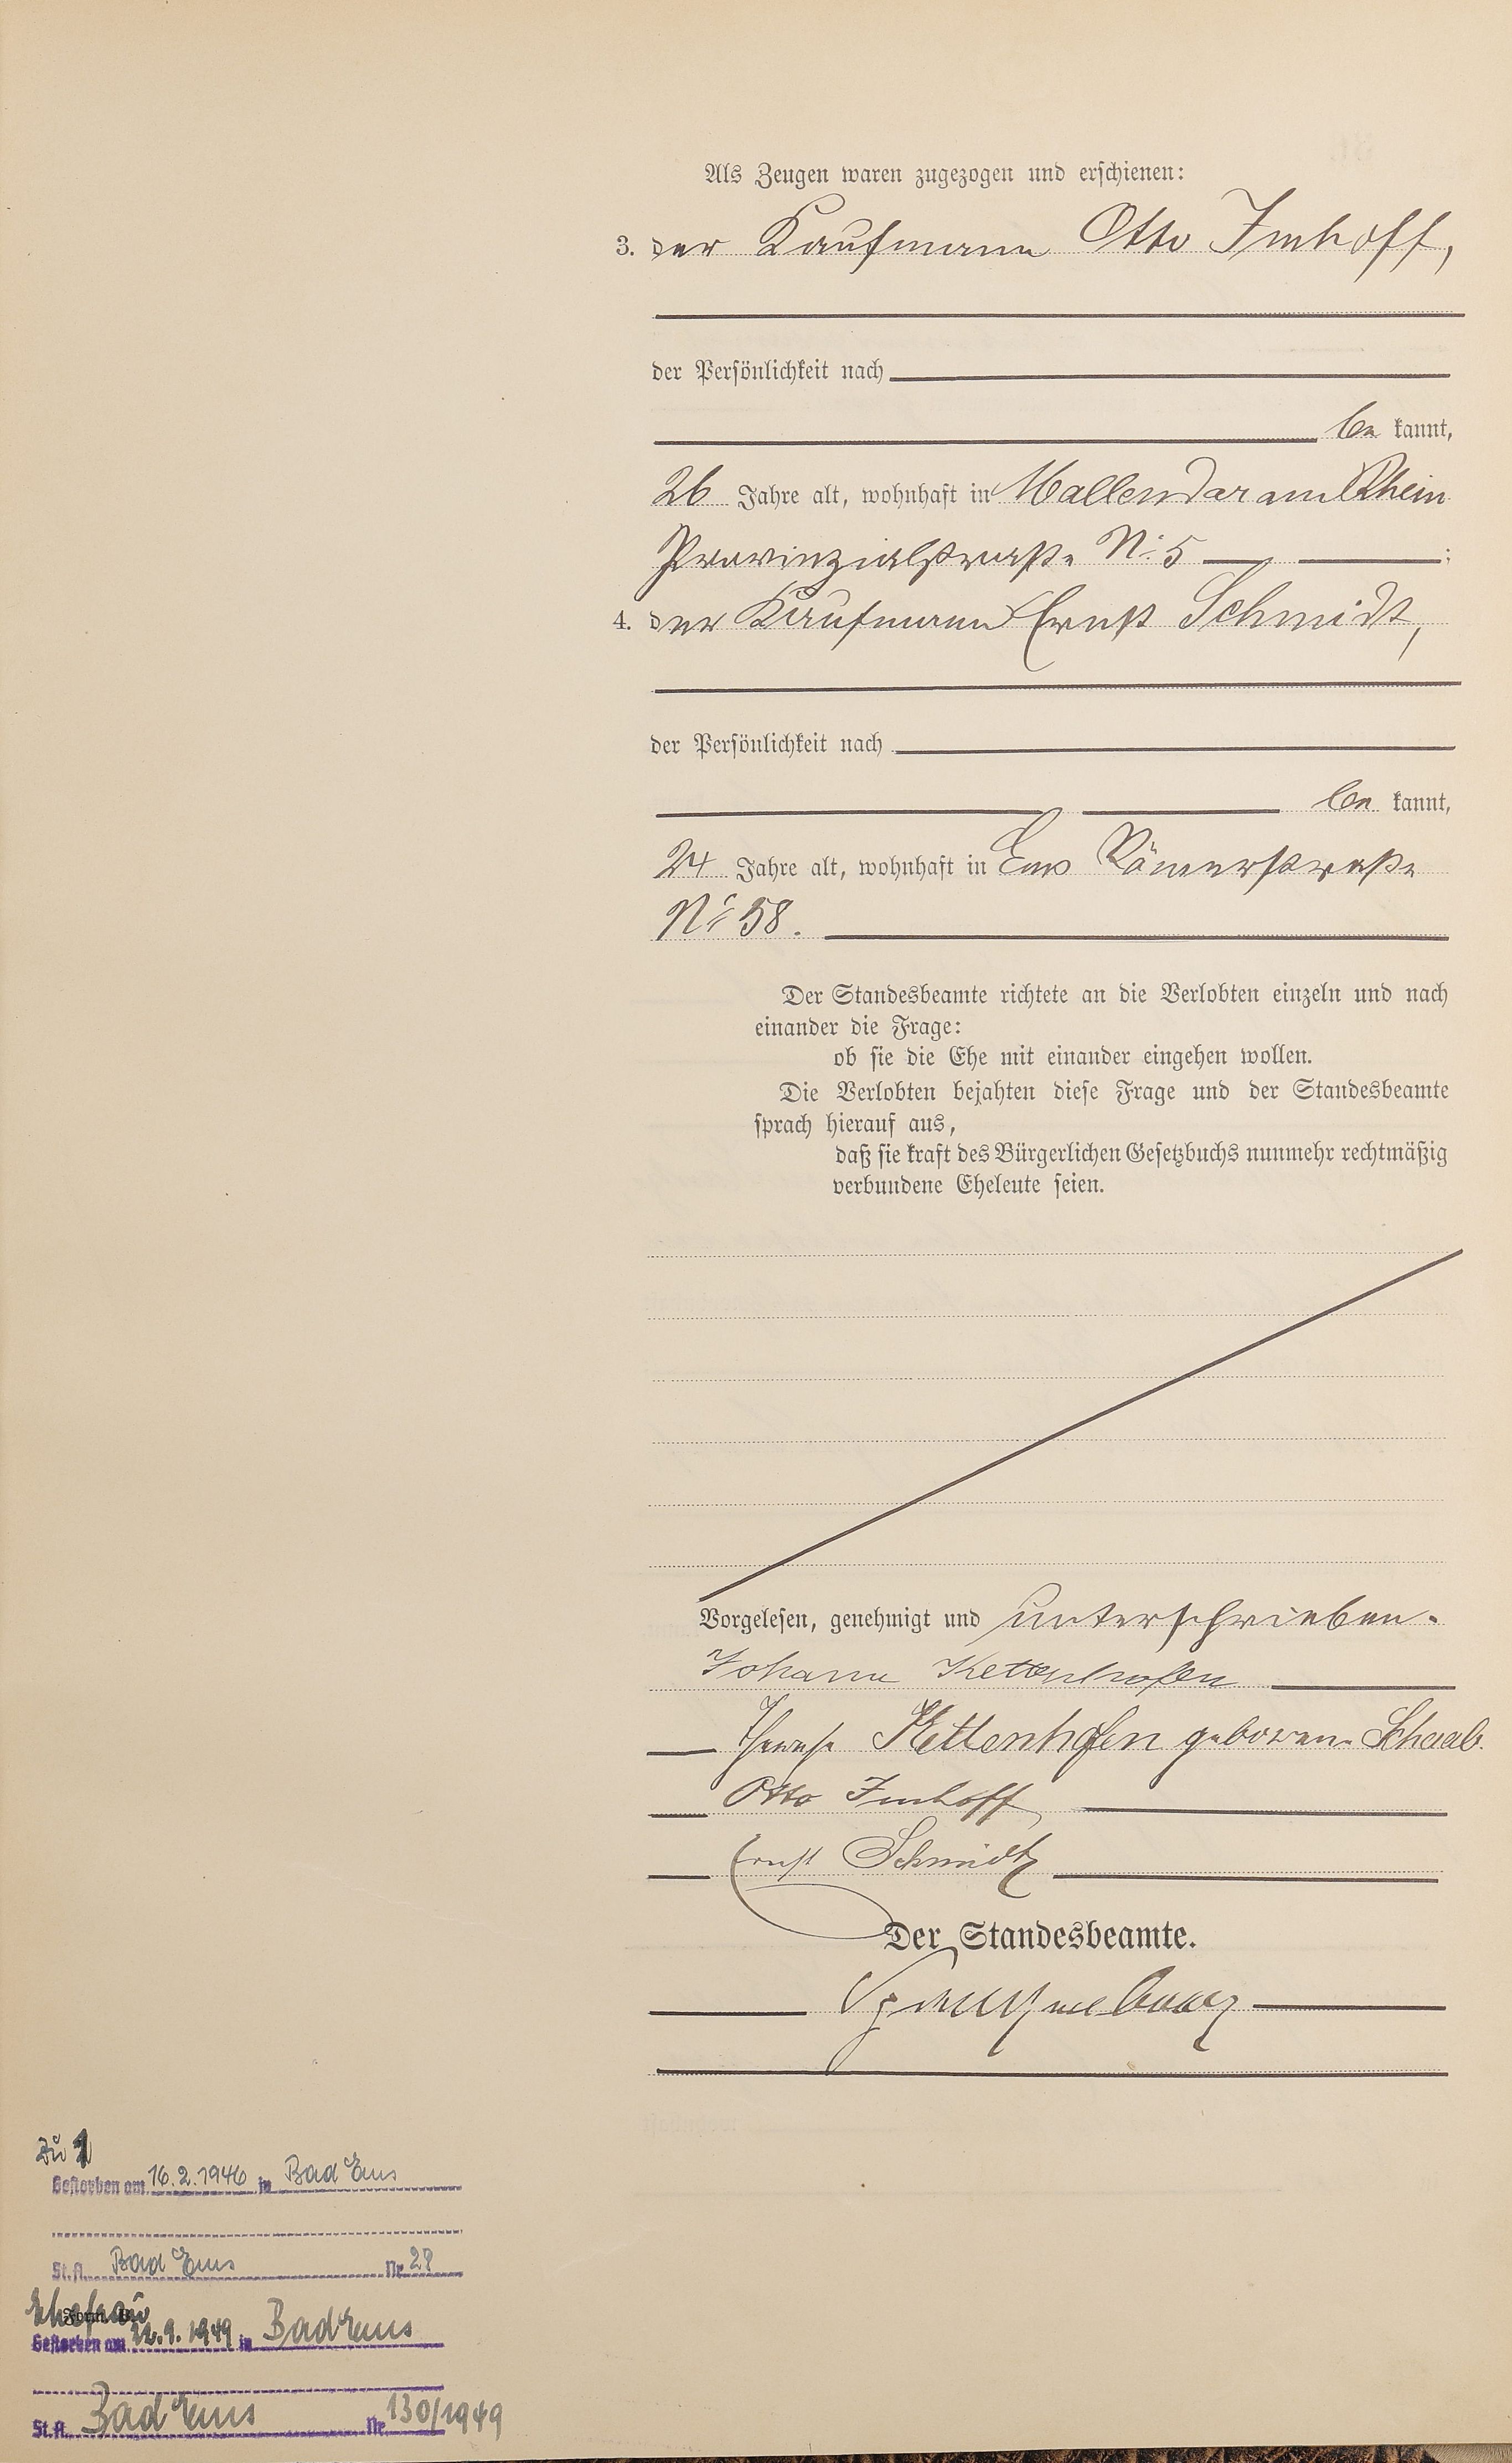 Als Zeugen waren zugezogen und erschienen:
3. der Kaufmann Otto Imhoff,
der Persönlichkeit nach
be kannt,
26 Jahre alt, wohnhaft in Mallendar am Rhein
Provinzialstraße No 5 ;
4. der Kaufmann Ernst Schmidt,
der Persönlichkeit nach
be kannt,
24 Jahre alt, wohnhaft in Ems Römerstraße
No 58.
Der Standesbeamte richtete an die Verlobten einzeln und nach
einander die Frage:
ob sie die Ehe mit einander eingehen wollen.
Die Verlobten bejahten diese Frage und der Standesbeamte
sprach hierauf aus,
daß sie kraft des Bürgerlichen Gesetzbuchs nunmehr rechtmäßig
verbundene Eheleute seien.
Vorgelesen, genehmigt und unterschrieben.
Johann Kettenhofen
Therese Kettenhofen geborene Schaab.
Otto Imhoff
Ernst Schmidt
Der Standesbeamte.
Zu 1
Gestorben am 16.2.1946 in Bad Ems
St.A. Bad Ems Nr. 29
Ehefrau
Form. B.
Gestorben am 22.9.1949 in Bad Ems
St.A. Bad Ems Nr. 130/1949